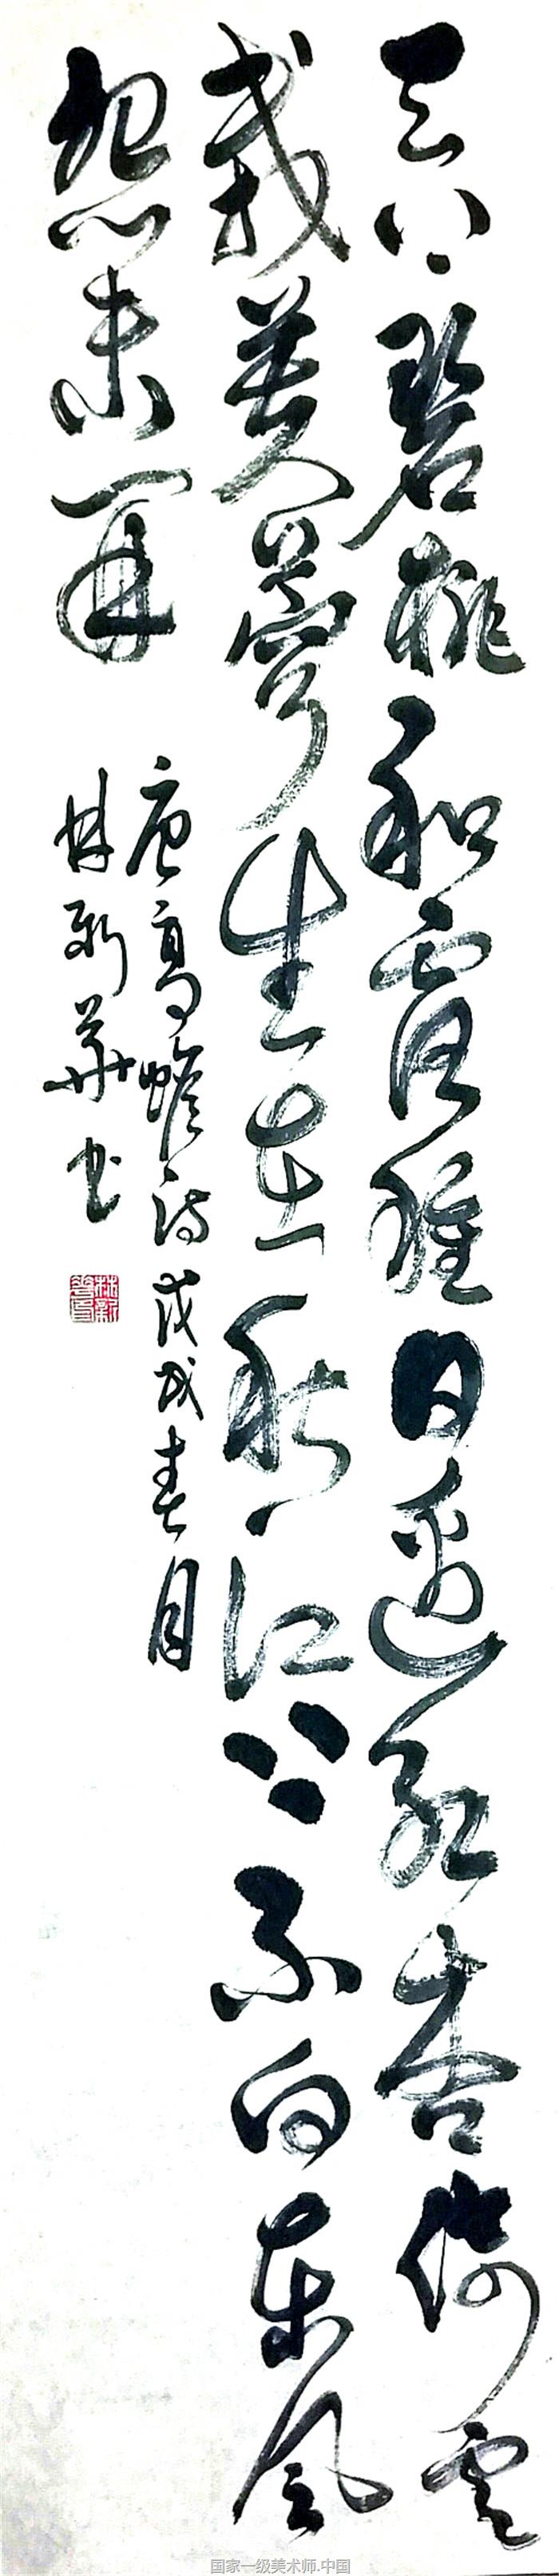 天上碧桃和露種日邊紅杏倚雲
栽芙蓉生在秋江上不向東風
怨未開
唐高蟾詩戊戌春月
林新華書
林新華印
国家一级美术师.中国